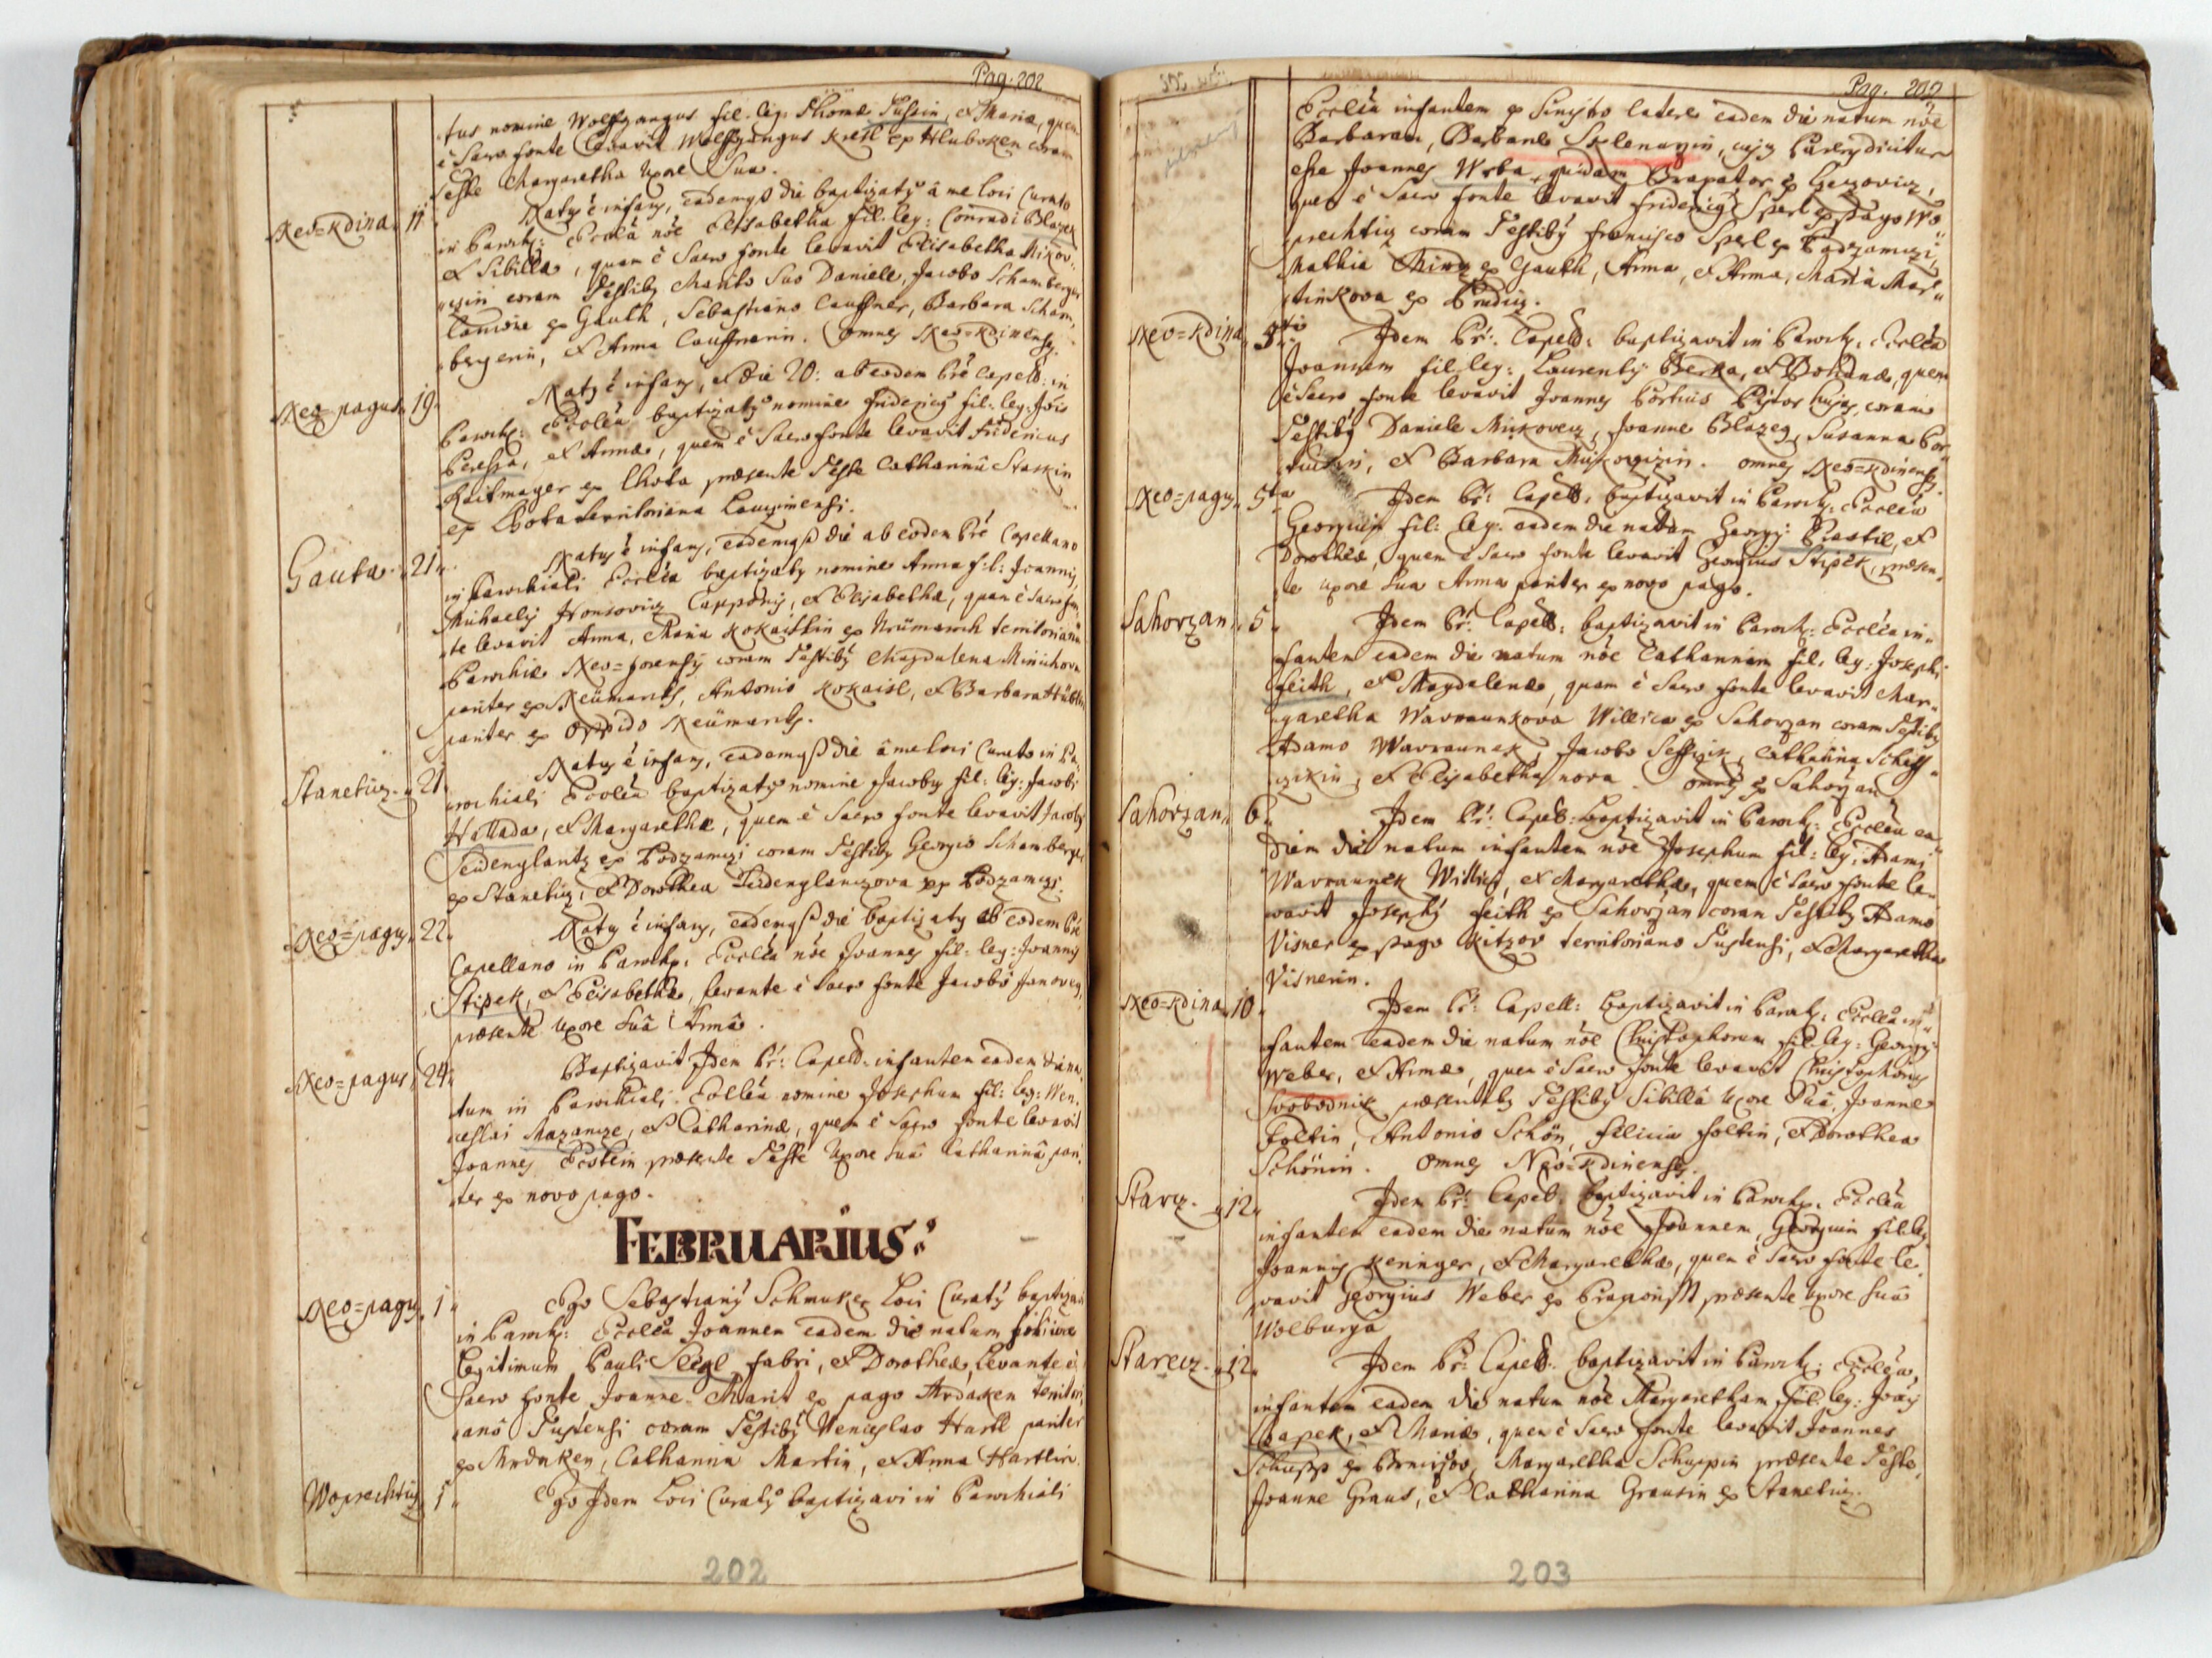 Pag. 202
tus nomine Wolffgangus fil. leg. Thomæ Tussin, et Maria, quem
è Sacro fonte levavit Wolffgangus Kresl ex Hluboken coram
Teste Margaretha Uxore Sua.
Neo=Kdina 11 Natus è infans, eademque die baptizatus â me loci Curato
in Paroch: Eccleâ nôe Elisabetha fil. leg: Conradi Blazek
et Sibillæ, quam è Sacro fonte levavit Elisabetha Mikov„
coram Testibus Marito Suo Daniele, Jacobo Schamberger
ex Gauth, Sebastiano Cauffner, Barbara Scham„
bergerin, et Anna Cauffnerin. Omnes Neo=Kdinenses.
Neo=pagus 19 Natus è infans, et die 20: ab eodem Prê Capell: in
Paroch: Eccleâ baptizatus nomine Fridericus fil: leg: Jôis
et Annæ, quem è Sacro fonte levavit Fridericus
ex Lhota præsente Teste Catharinâ
ex Lhota territoriana
Gauta 21 Natus è infans, eademque die ab eodem Prê Capellano
in Parochiali Eccleâ baptizatus nomine Anna fil: Joannis,
Michaelis et Elisabethæ, quam è Sacro fon„
te levavit Anna, Maria ex territoriana
Parochiæ coram Testibus Magdalena
pariter ex Neümarck, Antonio Kokaisl, et Barbara
pariter ex Oppido Neümark.
Stanetiz 21 Natus è infans, eademque die â me loci Curato in Pa„
rochiali Eccleâ baptizatus nomine Jacobus fil: leg: Jacobi
Hallada, et Margarethæ, quem è Sacro fonte levavit Jacobus
Seidenglantz ex Podzamczi coram Testibus Georgio Schamberger
ex Stanetiz, et Dorothea Seidenglanczova ex Podzamczi.
Neo=pagus 22 Natus è infans, eademque die baptizatus ab eodem Prê
Capellano in Paroch: Eccleâ nôe Joannes fil: leg: Joannis
Stipek, et Elisabethæ, levante è Sacro fonte Jacobo Janoveg,
præsente Uxore Suâ Annâ.
Neo=pagus 24 Baptizavit Idem Pr: Capell: infantem eadem die na„
tum in Parochiali Eccleâ nomine Josephum fil: leg: Wen„
ceslai Mazancze, et Catharinæ, quem è Sacro fonte levavit
Joannes præsente Teste Uxore Suâ Catharinâ pari„
ter ex novo pago.
FEBRUARIUS:
Neo=pagus 1 Ego Sebastianus Schmuker Loci Curatus baptizavi
in Paroch: Eccleâ Joannem eadem die natum
legitimum Pauli fabri, et Dorotheæ, levante è
Sacro fonte Joanne ex pago Mrdaken territori„
ano coram Testibus Wenceslao Hartl pariter
ex Mrdaken, Catharina Martin, et Anna Hartlin.
Woprechtiz 1 Ego Idem Loci Curatus baptizavi in Parochiali
202
Pag. 203
Eccleâ infantem ex Sinistro latere eadem die natum nôe
Barbaram, Barbaræ Sklenarzin, cujus Parens dicitur
esse Joannes Wrba, quidam ex
quam è Sacro fonte levavit Fridericus Sperl ex pago Wo„
prechtiz coram Testibus Francisco Sperl ex Podzamczi,
Mathia ex Gauth, Anna, et Anna, Maria Mar„
tinkova ex
Neo=Kdina 3tio Idem Pr: Capell: baptizavit in Paroch: Eccleâ
Joannem fil. leg: Laurenty Berka, et quem
è Sacro fonte levavit Joannes Portus Pistor hujas, coram
Testibus Daniele Mikovecz, Joanne Blazeg, Susanna Por„
tusin, et Barbara omnes Neo=Kdinenses.
Neo=pagus 5ta Idem Pr: Capell: baptizavit in Paroch: Eccleâ
Georgium fil: leg: eadem die natum Georgy et
Dorotheæ, quem è Sacro fonte levavit Georgius Stipek, præsen„
te Uxore Sua Anna pariter ex novo pago.
Sahorzan 5 Idem Pr: Capell: baptizavit in Paroch: Eccleâ in„
fantem eadem die natum nôe Catharinam fil. leg: Josephi
Feith, et Magdalenæ, quam è Sacro fonte levavit Mar„
garetha Wavraunkova Willica ex Sahorzan coram Testibus
Adamo Wavraunek, Jacobo Catharina
et Elisabetha nova. omnes ex Sahorzan
Sahorzan 6 Idem Pr: Capell: baptizavit in Paroch: Eccleâ ea„
diem die natum infantem nôe Josephum fil: leg: Adami
Wavraunek Willici, et Margarethæ, quem è Sacro fonte le„
vavit Josephus Feith ex Sahorzan coram Testibus Adamo
Visner ex pago Kitzov territoriano et Margaretha
Visnerin.
Neo=Kdina 10 Idem Pr: Capell: baptizavit in Paroch: Eccleâ in„
fantem eadem die natum nôe Christophorum fil. leg: Georgy
Weber, et Annæ, quem è Sacro fonte levavit Christophorus
Swobodnik præsentibus Testibus Sibillâ Uxore Suâ, Joanne
Foltin, Antonio Schön, Felicia Foltin, et Dorothea
Schönin. Omnes Neo=Kdinenses.
Starcz. 12 Idem Pr: Capell: baptizavit in Paroch: Eccleâ
infantem eadem die natum nôe Joannem, Georgium fil. leg:
Joannis Keninger, et Margarethæ, quem è Sacro fonte le„
vavit Georgius Weber ex præsente Uxore Suâ
Wolburga
Starecz. 12 Idem Pr: Capell: baptizavit in Paroch: Eccleâ,
infantem eadem die natum nôe Margaretham fil. leg: Joânis
et Mariæ, quam è Sacro fonte levavit Joannes
Schupp ex Margaretha Schuppin præsente Teste,
Joanne Graus, et Catharina Grausin ex Stanetiz.
203